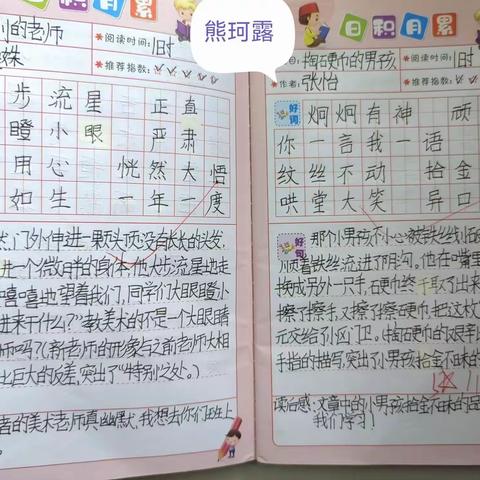 熊珂露
日积月累
的老师
★阅读时间:1时
★推荐指数:
步流星 正直
瞪小眼 严肃
用心 恍然大悟
如生 一年一度
门外伸进一颗头顶没有长长的头发,
进一个微胖的身体,他大步流星地走
嘻嘻地望着我们,同学们大眼瞪小
进来干什么?"教美术的不是一个大眼睛
师吗?(新老师的形象与之前老师大相
出巨大的反差,突出了"特别"之处。)
的美术老师真幽默,我想去你们班上
日积月累
掏硬币的男孩
★作者:张怡
★阅读时间:1时
★推荐指数:
好词
炯炯有神 顽
你一言我一语
纹丝不动 拾金
哄堂大笑 异口
好句
那个小男孩不小心被铁丝
顺着铁丝流进了阴沟。他在嘴里
换成另外一只手,硬币终于取了出来
擦了擦手,又擦了擦硬币,把这枚
元交给了小区门卫。(掏硬币的艰辛
手指的描写,突出了小男孩拾金不昧的
读后感:文章中的小男孩拾金不昧的品
我们学习!